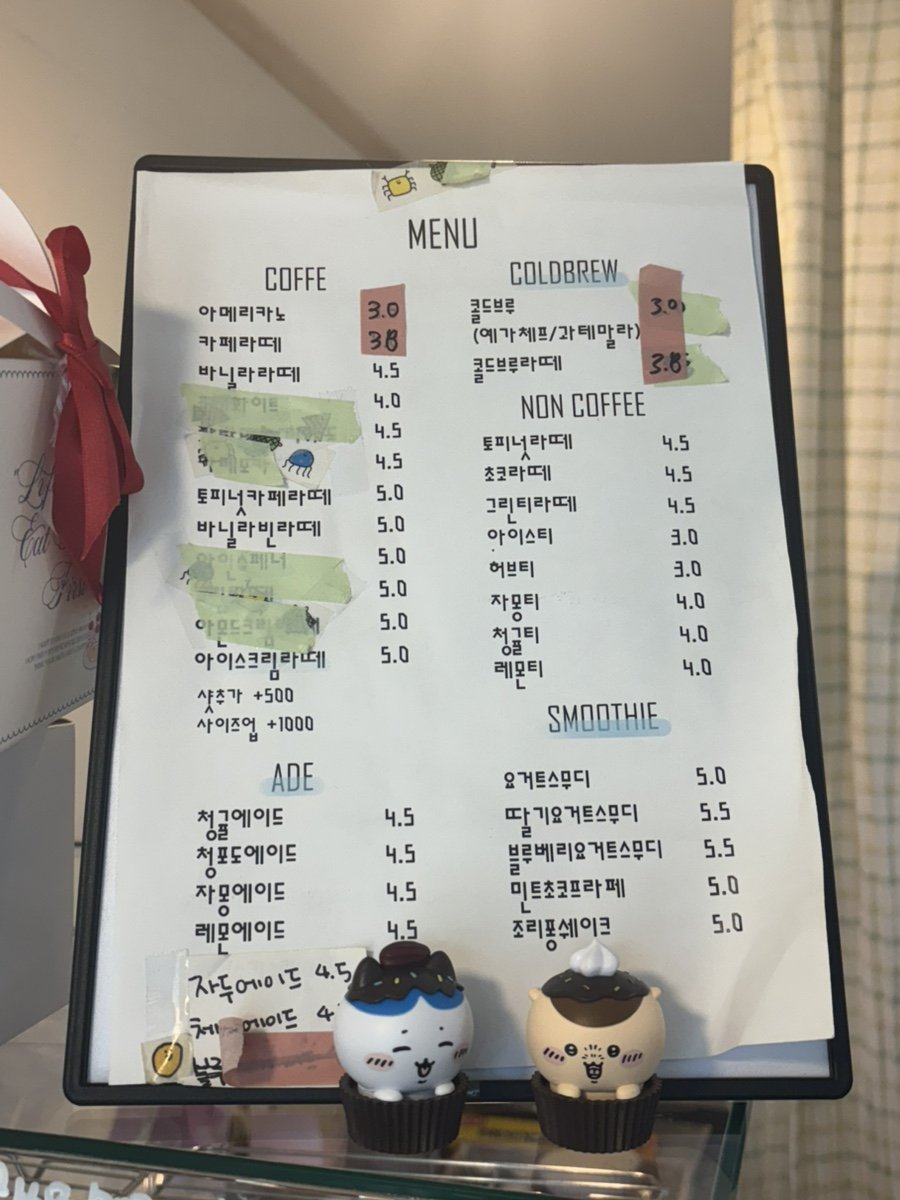 MENU
COFFE
아메리카노 3.0
카페라떼 3.8
바닐라라떼 4.5
화이트 4.0
4.5
4.5
토피넛카페라떼 5.0
바닐라빈라떼 5.0
아인슈페너 5.0
5.0
아몬드크림라떼 5.0
아이스크림라떼 5.0
샷추가 +500
사이즈업 +1000
ADE
청귤에이드 4.5
청포도에이드 4.5
자몽에이드 4.5
레몬에이드 4.5
자두에이드 4.5
에이드
COLDBREW
콜드브루 3.0
(예가체프/과테말라)
콜드브루라떼 3.8
NON COFFEE
토피넛라떼 4.5
초코라떼 4.5
그린티라떼 4.5
아이스티 3.0
허브티 3.0
자몽티 4.0
청귤티 4.0
레몬티 4.0
SMOOTHIE
요거트스무디 5.0
딸기요거트스무디 5.5
블루베리요거트스무디 5.5
민트초코프라페 5.0
조리퐁쉐이크 5.0